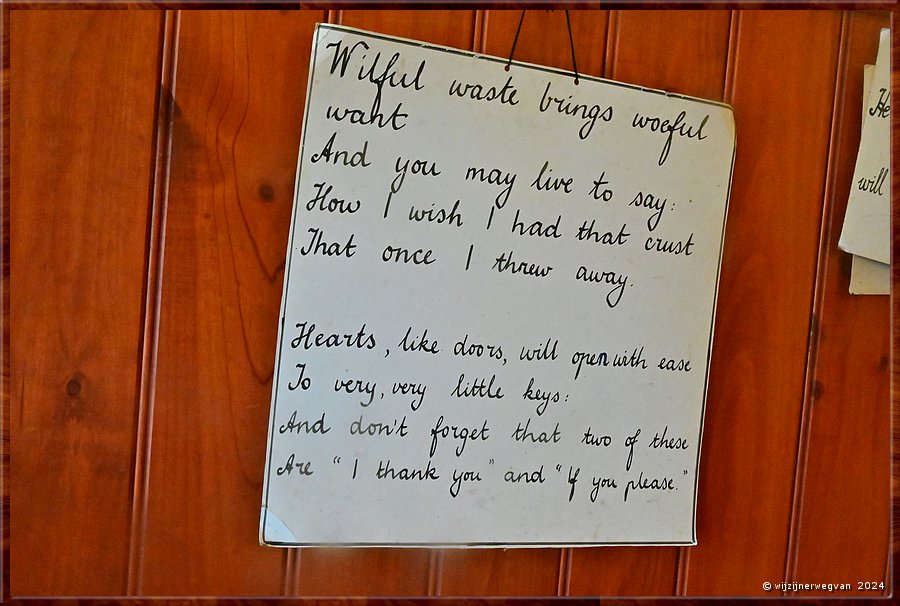 Wilful waste brings woeful
want
And you may live to say:
How I wish I had that crust
That once I threw away.
Hearts, like doors, will open with ease
To very, very little keys:
And don't forget that two of these
Are "I thank you" and "If you please."
He
will
© wijzijnerwegvan 2024